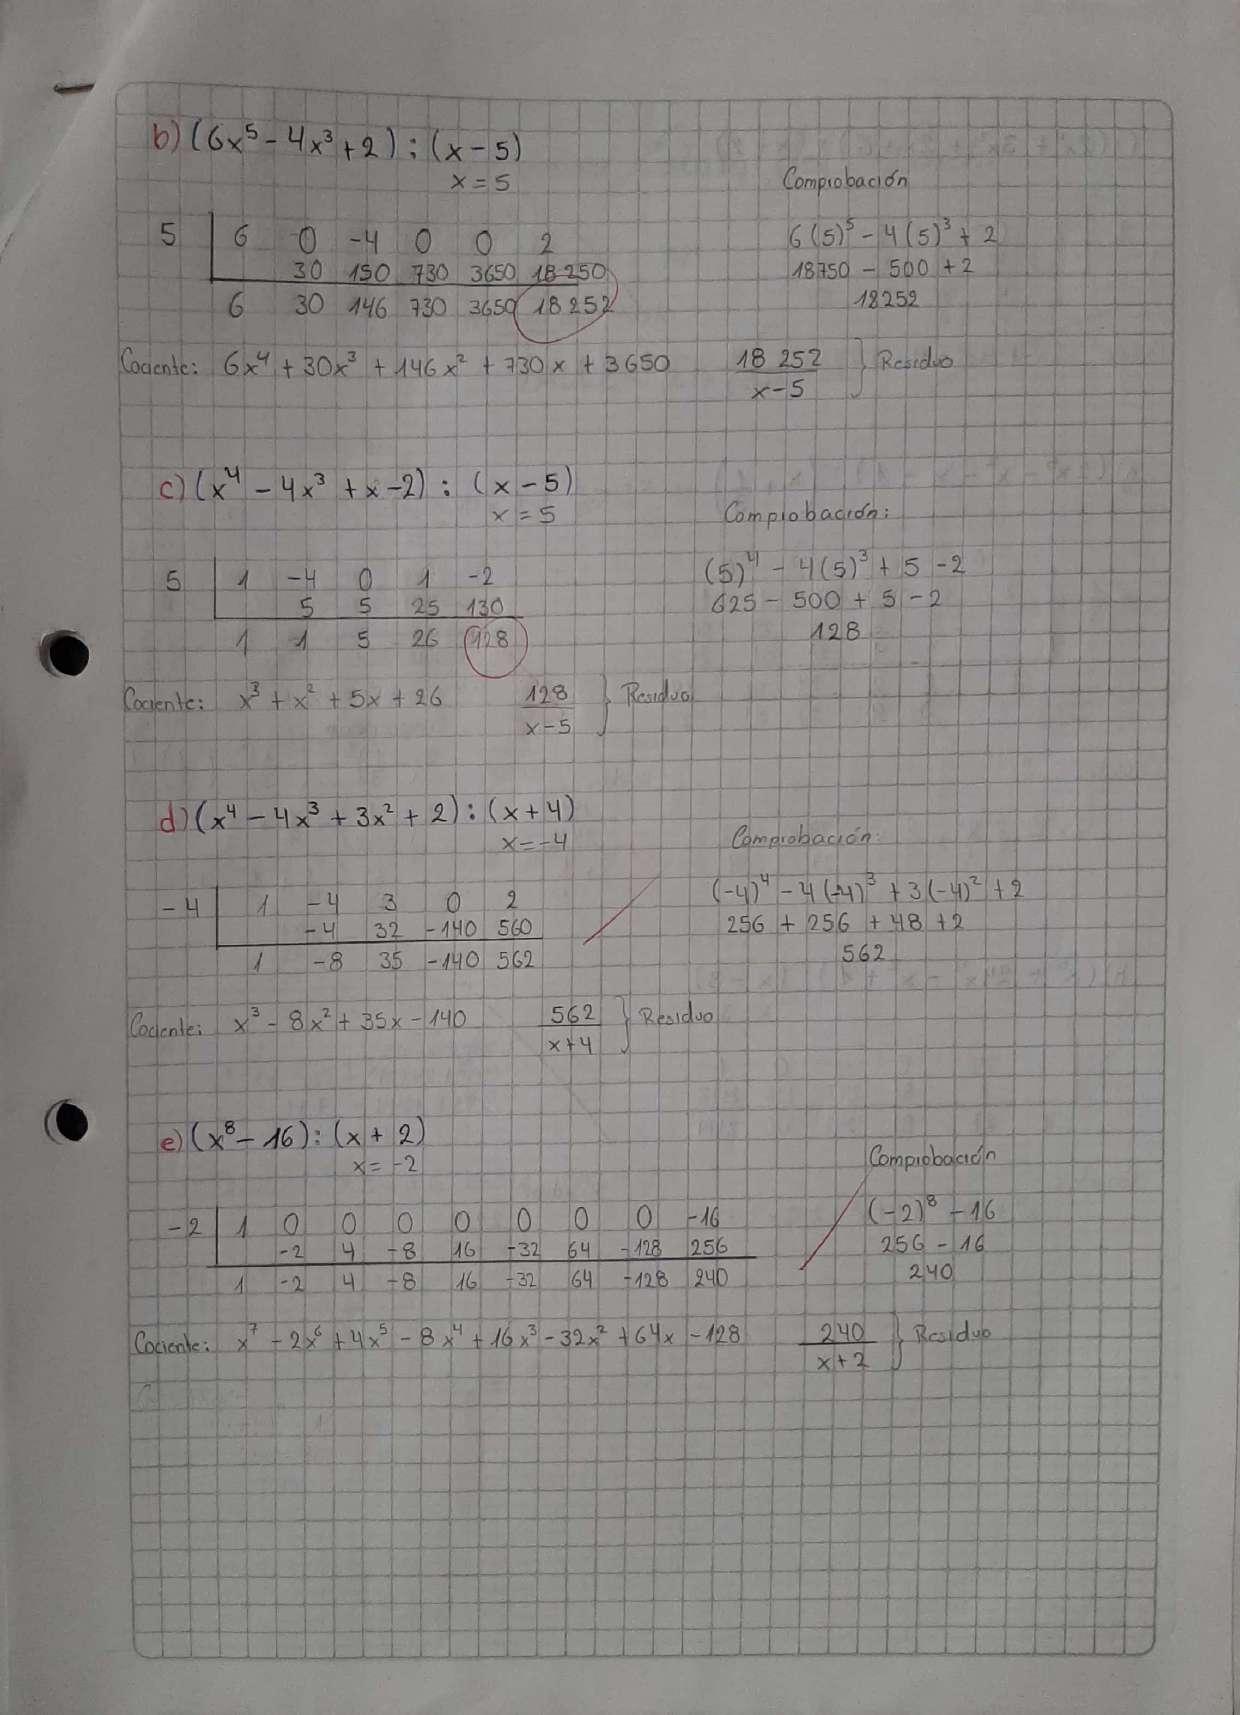 b) (6x⁵ - 4x³ + 2) : (x - 5)
x = 5
Comprobación
5 | 6 0 -4 0 0 2
30 150 730 3650 18 250
6 30 146 730 3650 18 252
6(5)⁵ - 4(5)³ + 2
18750 - 500 + 2
18252
Cociente: 6x⁴ + 30x³ + 146x² + 730x + 3650 18 252 / x-5 } Residuo
c) (x⁴ - 4x³ + x - 2) : (x - 5)
x = 5
Comprobación:
5 | 1 -4 0 1 -2
5 5 25 130
1 1 5 26 128
(5)⁴ - 4(5)³ + 5 - 2
625 - 500 + 5 - 2
128
Cociente: x³ + x² + 5x + 26 128 / x-5 } Residuo
d) (x⁴ - 4x³ + 3x² + 2) : (x + 4)
x = -4
Comprobación:
-4 | 1 -4 3 0 2
-4 32 -140 560
1 -8 35 -140 562
(-4)⁴ - 4(-4)³ + 3(-4)² + 2
256 + 256 + 48 + 2
562
Cociente: x³ - 8x² + 35x - 140 562 / x+4 } Residuo
e) (x⁸ - 16) : (x + 2)
x = -2
Comprobación
-2 | 1 0 0 0 0 0 0 0 -16
-2 4 -8 16 -32 64 -128 256
1 -2 4 -8 16 -32 64 -128 240
(-2)⁸ - 16
256 - 16
240
Cociente: x⁷ - 2x⁶ + 4x⁵ - 8x⁴ + 16x³ - 32x² + 64x - 128 240 / x+2 } Residuo